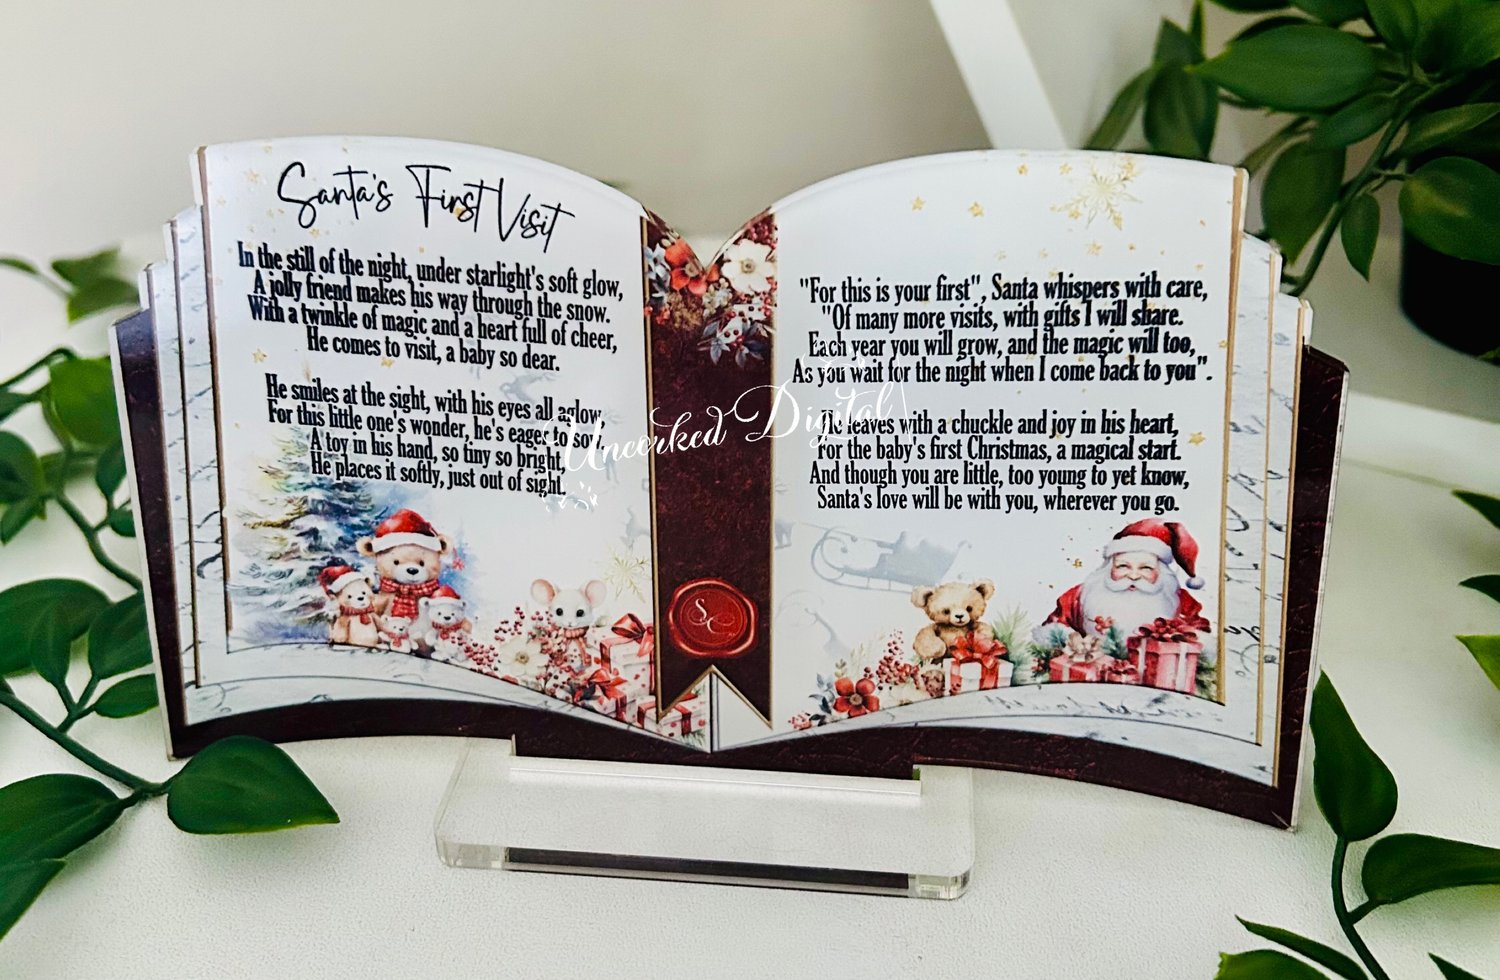 Santa's First Visit
In the still of the night, under starlight's soft glow,
A jolly friend makes his way through the snow.
With a twinkle of magic and a heart full of cheer,
He comes to visit, a baby so dear.
He smiles at the sight, with his eyes all aglow,
For this little one's wonder, he's eager to sow,
A toy in his hand, so tiny so bright,
He places it softly, just out of sight.
"For this is your first", Santa whispers with care,
"Of many more visits, with gifts I will share.
Each year you will grow, and the magic will too,
As you wait for the night when I come back to you".
He leaves with a chuckle and joy in his heart,
For the baby's first Christmas, a magical start.
And though you are little, too young to yet know,
Santa's love will be with you, wherever you go.
Uncorked Digital
SC